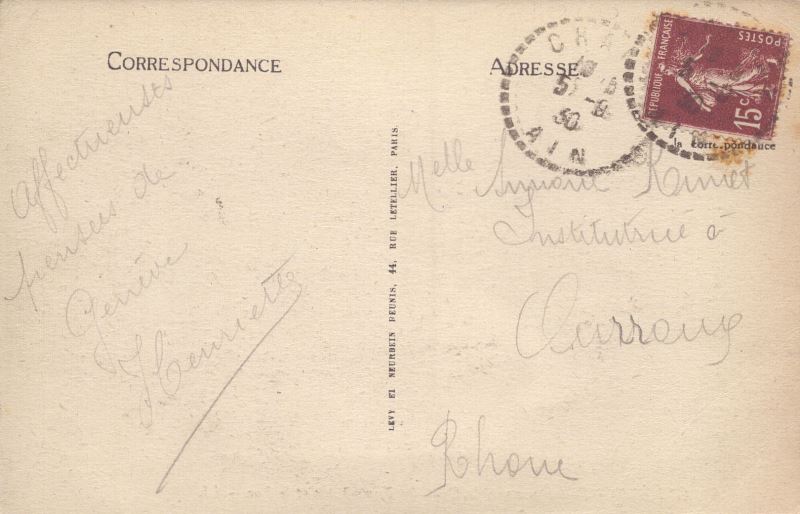 CORRESPONDANCE
Affectueuses
pensées de
Genève
Henriette
LEVY ET NEURDEIN REUNIS, 44, RUE LETELLIER, PARIS.
ADRESSE
CHA
18
5 - 8
30
AIN
REPUBLIQUE FRANÇAISE
POSTES
15 c.
la correspondance
Melle
Institutrice à
Rhone